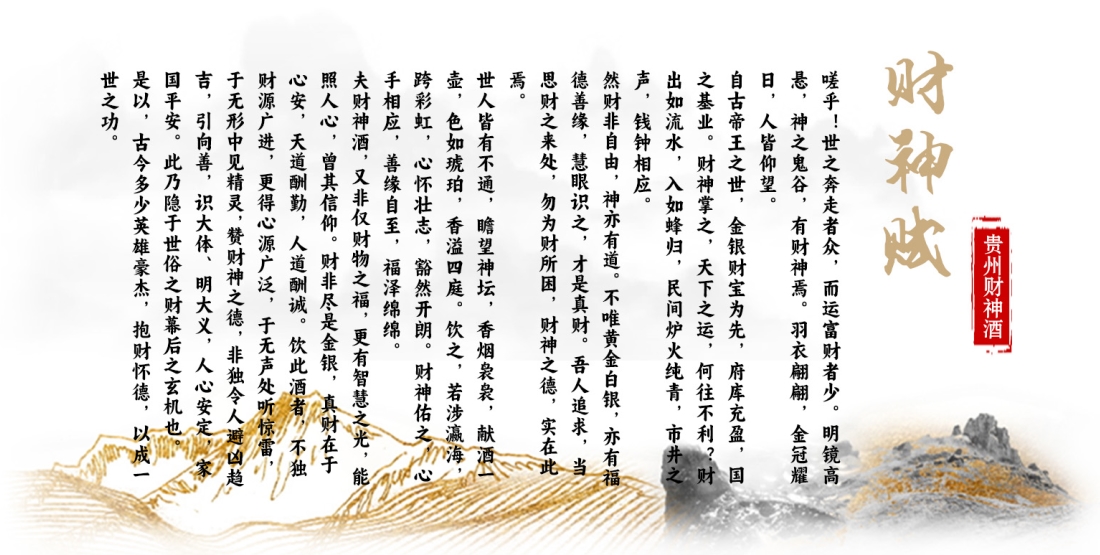 财神赋
贵州财神酒
嗟乎！世之奔走者众，而运富财者少。明镜高
悬，神之鬼谷，有财神焉。羽衣翩翩，金冠耀
日，人皆仰望。
自古帝王之世，金银财宝为先，府库充盈，国
之基业。财神掌之，天下之运，何往不利？财
出如流水，入如蜂归，民间炉火纯青，市井之
声，钱钟相应。
然财非自由，神亦有道。不唯黄金白银，亦有福
德善缘，慧眼识之，才是真财。吾人追求，当
思财之来处，勿为财所困，财神之德，实在此
焉。
世人皆有不通，瞻望神坛，香烟袅袅，献酒一
壶，色如琥珀，香溢四庭。饮之，若涉瀛海，
跨彩虹，心怀壮志，豁然开朗。财神佑之，心
手相应，善缘自至，福泽绵绵。
夫财神酒，又非仅财物之福，更有智慧之光，能
照人心，曾其信仰。财非尽是金银，真财在于
心安，天道酬勤，人道酬诚。饮此酒者，不独
财源广进，更得心源广泛，于无声处听惊雷，
于无形中见精灵，赞财神之德，非独令人避凶趋
吉，引向善，识大体、明大义，人心安定，家
国平安。此乃隐于世俗之财幕后之玄机也。
是以，古今多少英雄豪杰，抱财怀德，以成一
世之功。